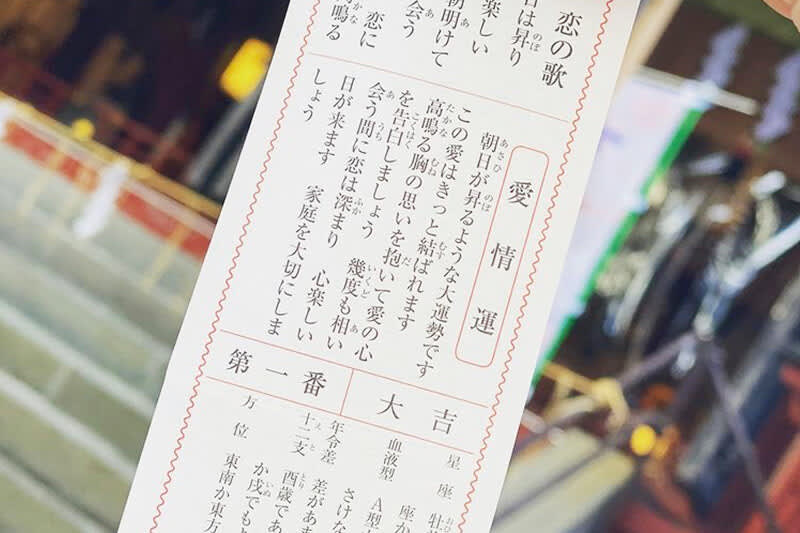 恋の歌
日は昇り
楽しい
朝明けて
会う
恋に
鳴る
愛情運
朝日が昇るような大運勢です
この愛はきっと結ばれます
高鳴る胸の思いを抱いて愛の心
を告白しましょう 幾度も相い
会う間に恋は深まり 心楽しい
日が来ます 家庭を大切にしま
しょう
第一番
大吉
星座 牡
座か
血液型 A型
さけな
年令差 差があま
十二支 酉歳であ
か戌でも
方位 東南か東方